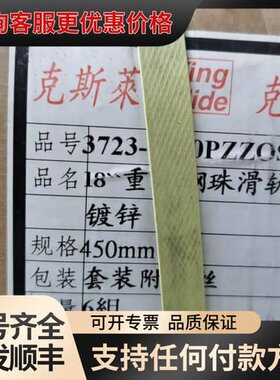 询客服更多优惠价格
克斯萊 ing
ide 克
品号 3723- 0PZZ09
品名 18``重 钢珠滑轨
镀锌
规格 450mm
包装 套装附 丝
量 6组
号齐全
发顺丰
可开专票
支持任何付款方